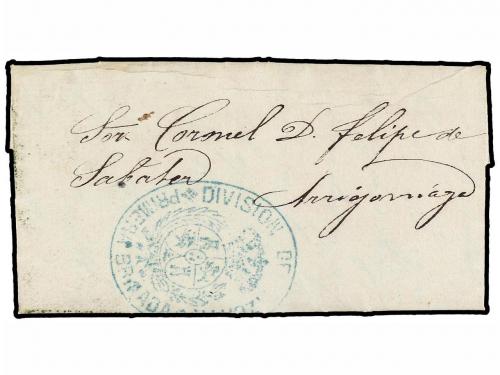 Sor. Coronel D. Felipe de
Sabater
Arrigorriaga
DIVISION DE
PRIMERA BRIGADA